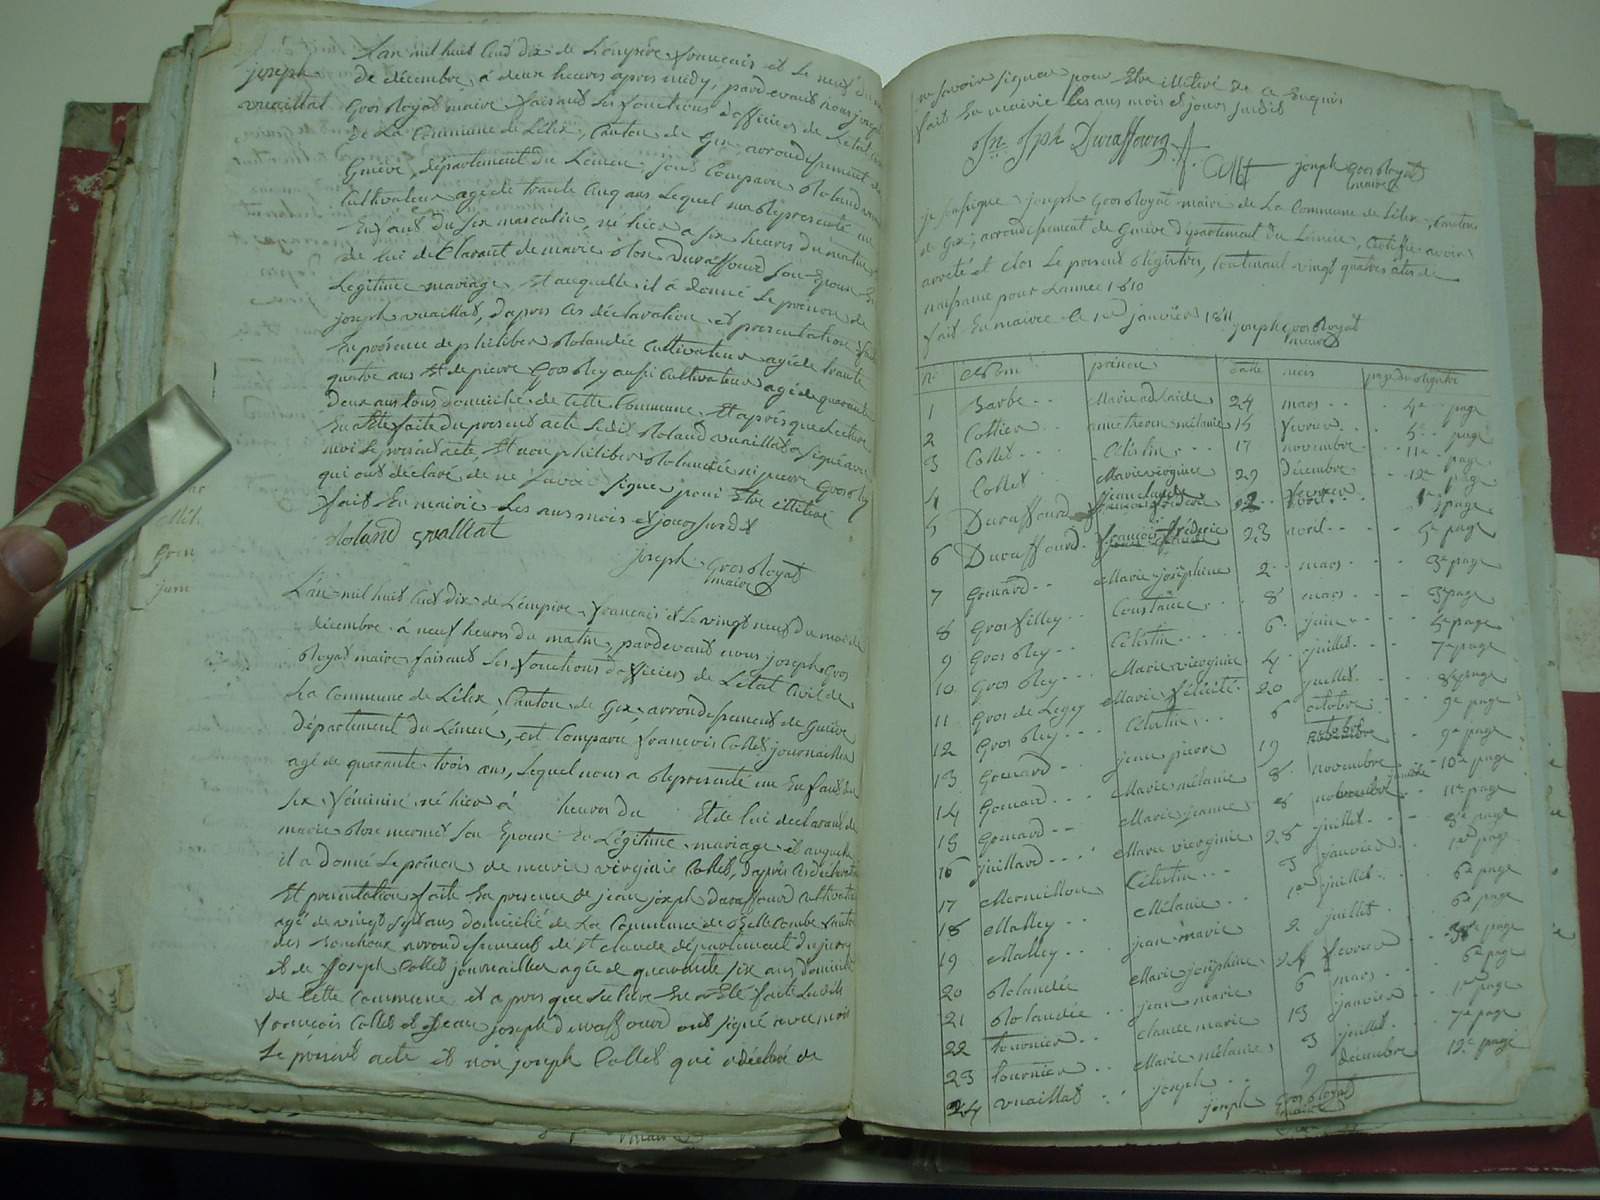 joseph
vuaillat
L'an mil huit cent dix de L'empire francais et Le neuf du
de décembre, à deux heures apres midy, pardevant nous joseph
Gros Royat maire faisant Les fonctions d'officier de L'etat civil
de La Commune de Lélex, Canton de Gex arrondissement de
Genève, département du Léman, sont Comparu Roland
Cultivateur agé de trante Cinq ans Lequel nous a Représenté un
Enfant du sex masculin, né hier a six heures du matin
de lui déClarant de marie Rose Duraffourd son Epouse En
Legitime mariage, Et auquelle il à donné Le prénon de
joseph vuaillat, d'après Ces déclaration et presentation
En présence de philiber Rolandéz Cultivateur agé de trante
quatre ans Et de pierre Grosrey aussi Cultivateur agé de quarante
Deux ans tous domicilié de Cette Commune Et après que Lecture
En a été faite du present acte Ledit Roland vuaillat a signé avec
moi Le présent acte Et non philiber Rolandéz ni pierre Grosrey
qui ont déclaré de ne Savoir signer pour Etre illitéré
fait En mairie Les ans mois et jour susdit
Roland vuaillat
joseph Gros Royat
maire
L'an mil huit Cent dix de L'empire francais et Le vingt neuf du mois de
décembre à neuf heures du matin, pardevant nous joseph Gros
Royat maire faisant Les fonctions d'officier de L'etat Civil de
La Commune de Lélex, Canton de Gex, arrondissement de Genève
département du Léman, est Comparu francois Collet journaillier
agé de quarante trois ans, Lequel nous a Représenté un Enfant du
sex féminin né hier à heures du Et de lui déclarant de
marie Rose mermet son Epouse En Légitime mariage et auquelle
il a donné Le prénon de marie virginie Collet, D'après Ces déclaration
Et présentation faite En présence de jean joseph Duraffourd Cultivateur
agé de vingt sept ans domicilié de La Commune de Belle Combe Canton
des bouchoux arrondissement de St claude département du jura
et de Joseph Collet journaillier agée de quarante six ans domicilié
de Cette Commune et a près que Lecture En a Eté faite Ledit
francois Collet et Jean joseph duraffourd ont signé avec moi
Le présent acte et non joseph Collet qui a déclaré de
ne savoir signer pour Etre illitéré de Ce Enquis
fait En mairie Les ans mois et jours susdit
Jn Jph Duraffourg
joseph Gros Royat
maire
je soussigné joseph Gros Royat maire de La Commune de Lélex, Canton
de Gex, arrondissement de Genève département du Léman, Certifie avoir
arreté et clos Le présent Registres, Contenant vingt quatres actes de
naissance pour L'année 1810
fait En mairie Ce 1er janvier 1811
joseph Gros Royat
maire
N° Nom prénon date mois page du Registre
1 Barbe Marie adelaide 24 mars 4e page
2 Collier anne therese mélanie 15 fevrier 3e page
3 Collet Célestin 17 novembre 11e page
4 Collet Marie virginie 29 décembre 12e page
5 Duraffourd jean claude 22 fevrier 1e page
6 Duraffourd francois frédéric 23 avril 5e page
7 Gonard Marie joséphine 2 mars 3e page
8 Gros fillex Constance 8 mars 3e page
9 Gros Rey Célestin 6 juin 5e page
10 Gros Rey Marie virginie 4 juillet 7e page
11 Gros de Legex Marie félicité 20 juillet 8e page
12 Gros Rey Célestin 6 octobre 9e page
13 Gonard jean pierre 19 octobre 9e page
14 Gonard Marie mélanie 8 novembre 10e page
15 Gonard Marie jeanne 8 novembre 11e page
16 juillard Marie virginie 28 juillet 8e page
17 Mermillon Célestin 3 janvier 1er page
18 Malley Mélanie 1er juillet 6e page
19 Malley jean marie 2 juillet 6e page
20 Rolandéz Marie joséphine 24 fevrier 3e page
21 Rolandéz jean marie 6 mars page
22 tournier claude marie 13 janvier 1er page
23 tournier Marie mélanie 3 juillet 7e page
24 vuaillat joseph 9 décembre 12e page
joseph Gros Royat
maire